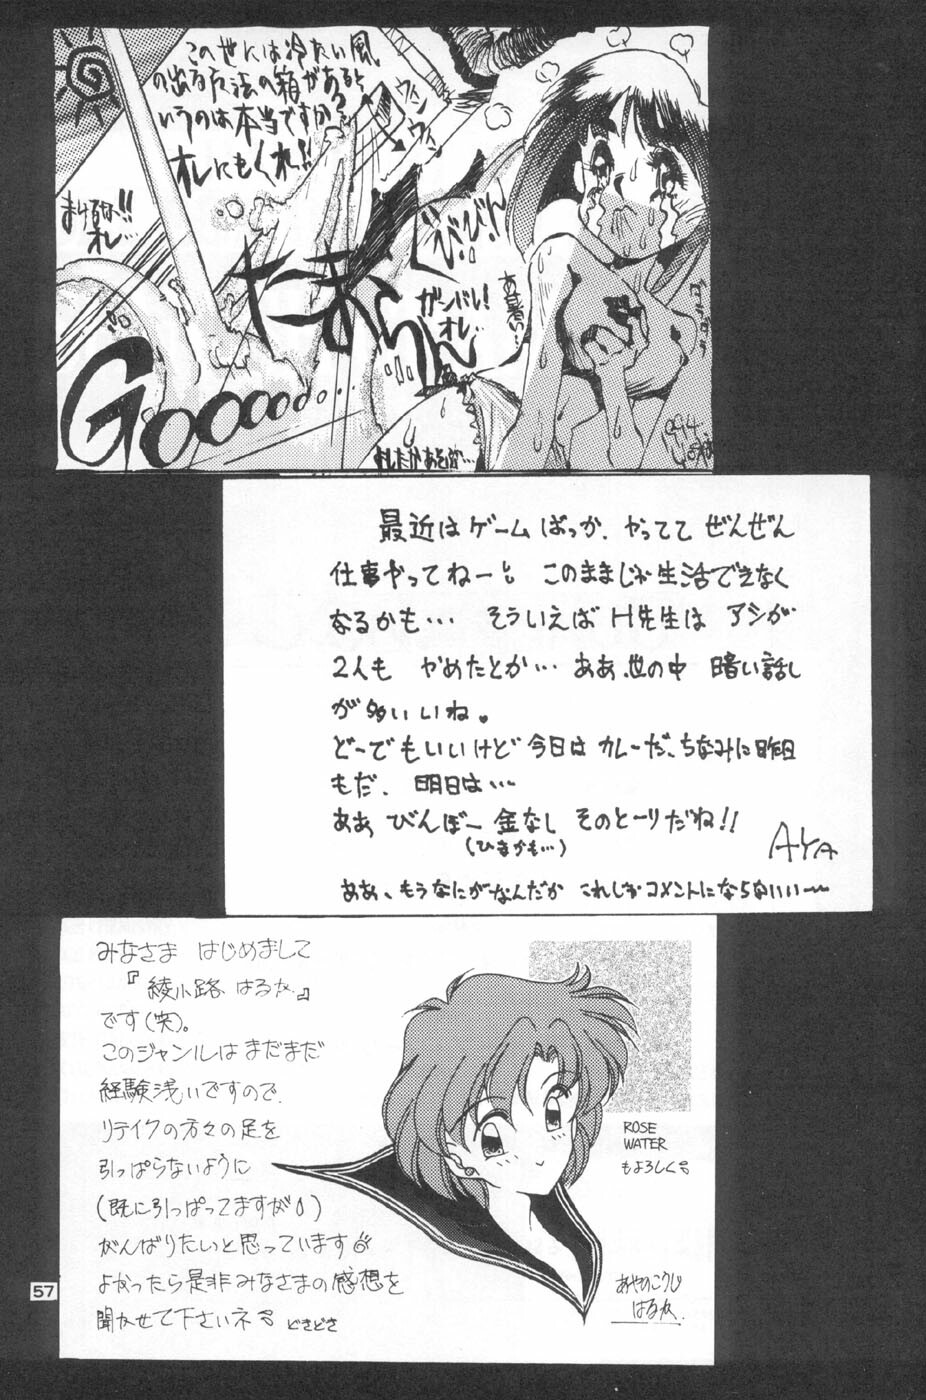 この世には冷たい風
の出る魔法の箱があると
いうのは本当ですか?
オレにもくれ!!
ウィン
ウィ
まけるな!!
オレ…
びんびん!!
たまらん
ガンバレ!
オレ…
あ暑い…
Gooooooo...
'94
最近はゲームばっか、やってて ぜんぜん
仕事やってねーと このままじゃ生活できなく
なるかも… そういえば H先生は アシが
2人も やめたとか… ああ、世の中 暗い話し
が多いいね。
どーでもいいけど 今日は カレーだ、ちなみに昨日
もだ、 明日は…
ああ びんぼー 金なし そのとーりだね!!
(ひまかも…)
AYA
ああ、もうなにがなんだか これじゃコメントにならないいー
みなさま はじめまして
『綾小路 はるか』
です(笑)。
このジャンルは まだまだ
経験浅いですので、
リテイクの方々の足を
引っぱらないように
(既に引っぱってますが)
がんばりたいと思っています
よかったら是非みなさまの感想を
聞かせて下さいネ どきどき
ROSE
WATER
もよろしく
あやのこうじ
はるか.
57